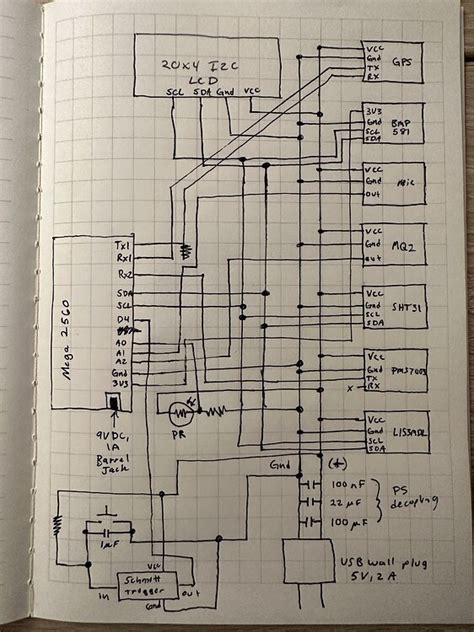 20x4 I2C
LCD
SCL SDA Gnd VCC
VCC
Gnd
TX
RX
GPS
3V3
Gnd
SCL
SDA
BMP
581
VCC
Gnd
out
Mic
VCC
Gnd
out
MQ2
VCC
Gnd
SCL
SDA
SHT31
VCC
Gnd
TX
x RX
VCC
Gnd
SCL
SDA
Mega 2560
Tx1
Rx1
Rx2
SDA
SCL
D4
A0
A1
A2
Gnd
3V3
9VDC,
1A
Barrel
Jack
PR
Gnd (+)
100 nF
22 µF
100 µF
PS
decoupling
USB wall plug
5V, 2A
1µF
VCC
in
Schmitt
trigger
out
Gnd